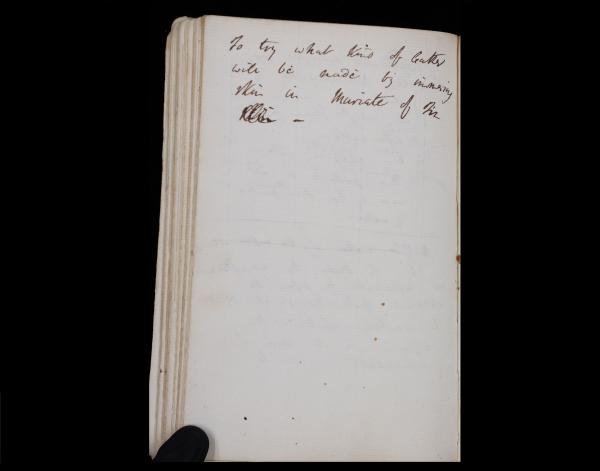 To try what kind of leather
will be made by immersing
skin in Muriate of Tin
—